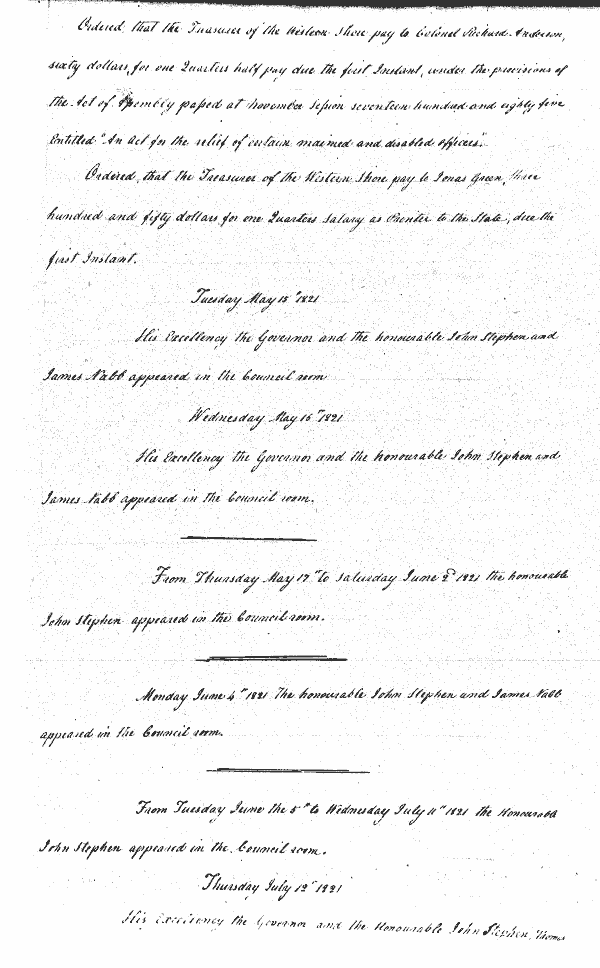 Ordered, that the Treasurer of the Western Shore pay to Colonel Richard Anderson,
sixty dollars, for one Quarters half pay due the first Instant, under the provisions of
the Act of Assembly passed at November session seventeen hundred and eighty five
Entitled "An Act for the relief of certain maimed and disabled officers".
Ordered, that the Treasurer of the Western Shore pay to Jonas Green, three
hundred and fifty dollars for one Quarters salary as Printer to the State, due the
first Instant.
Tuesday May 15th 1821
His Excellency the Governor and the honourable John Stephen and
James Nabb appeared in the Council room
Wednesday May 16th 1821
His Excellency the Governor and the honourable John Stephen and
James Nabb appeared in the Council room.
From Thursday May 17th to Saturday June 2d 1821 the honourable
John Stephen appeared in the Council room.
Monday June 4th 1821 The honourable John Stephen and James Nabb
appeared in the Council room.
From Tuesday June the 5th to Wednesday July 11th 1821 the Honourable
John Stephen appeared in the Council room.
Thursday July 12th 1821
His Excellency the Governor and the Honourable John Stephen, Thomas